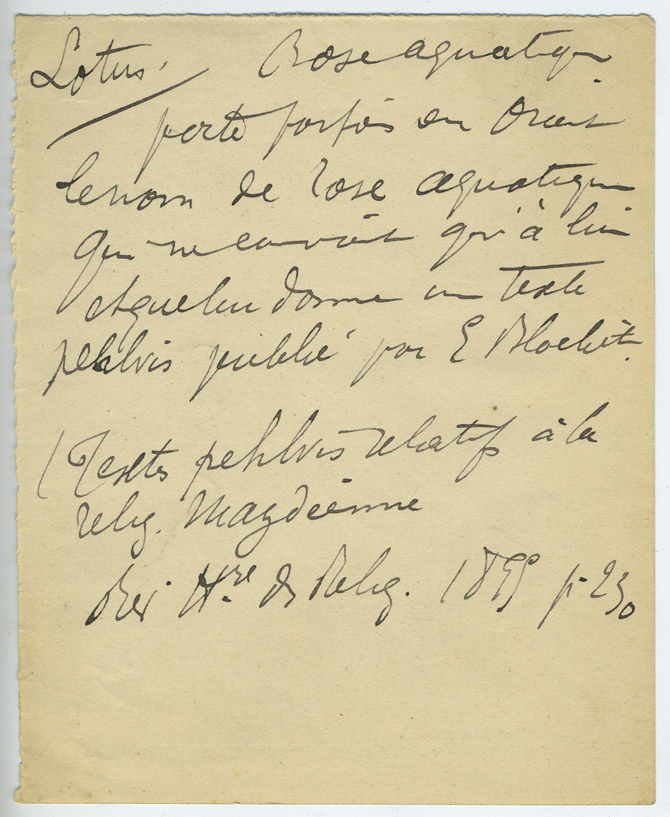 Lotus. Rose aquatique
porte parfois en Orient
le nom de rose aquatique
qui ne convient qu'à lui
et que lui donne un texte
pehlvis publié par E Blochet.
(Textes pehlvis relatifs à la
relig. Mazdéenne
Rev. H.re des Relig. 1895 p. 230